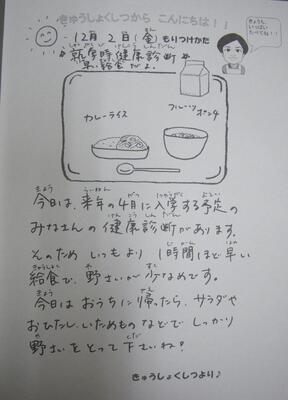 きゅうしょくしつから こんにちは！！
きょうも
いっぱい
たべてね！！
12月 2日(金) もりつけかた
就学時健康診断
早い給食だよ。
カレーライス
フルーツ
ポンチ
今日は、来年の4月に入学する予定の
みなさんの 健康診断があります。
そのため いつもより 1時間ほど早い
給食で、野さいが 少なめです。
今日は おうちに帰ったら、サラダや
おひたし、いためもの などで しっかり
野さいをとって下さいね！
きゅうしょくしつより♪